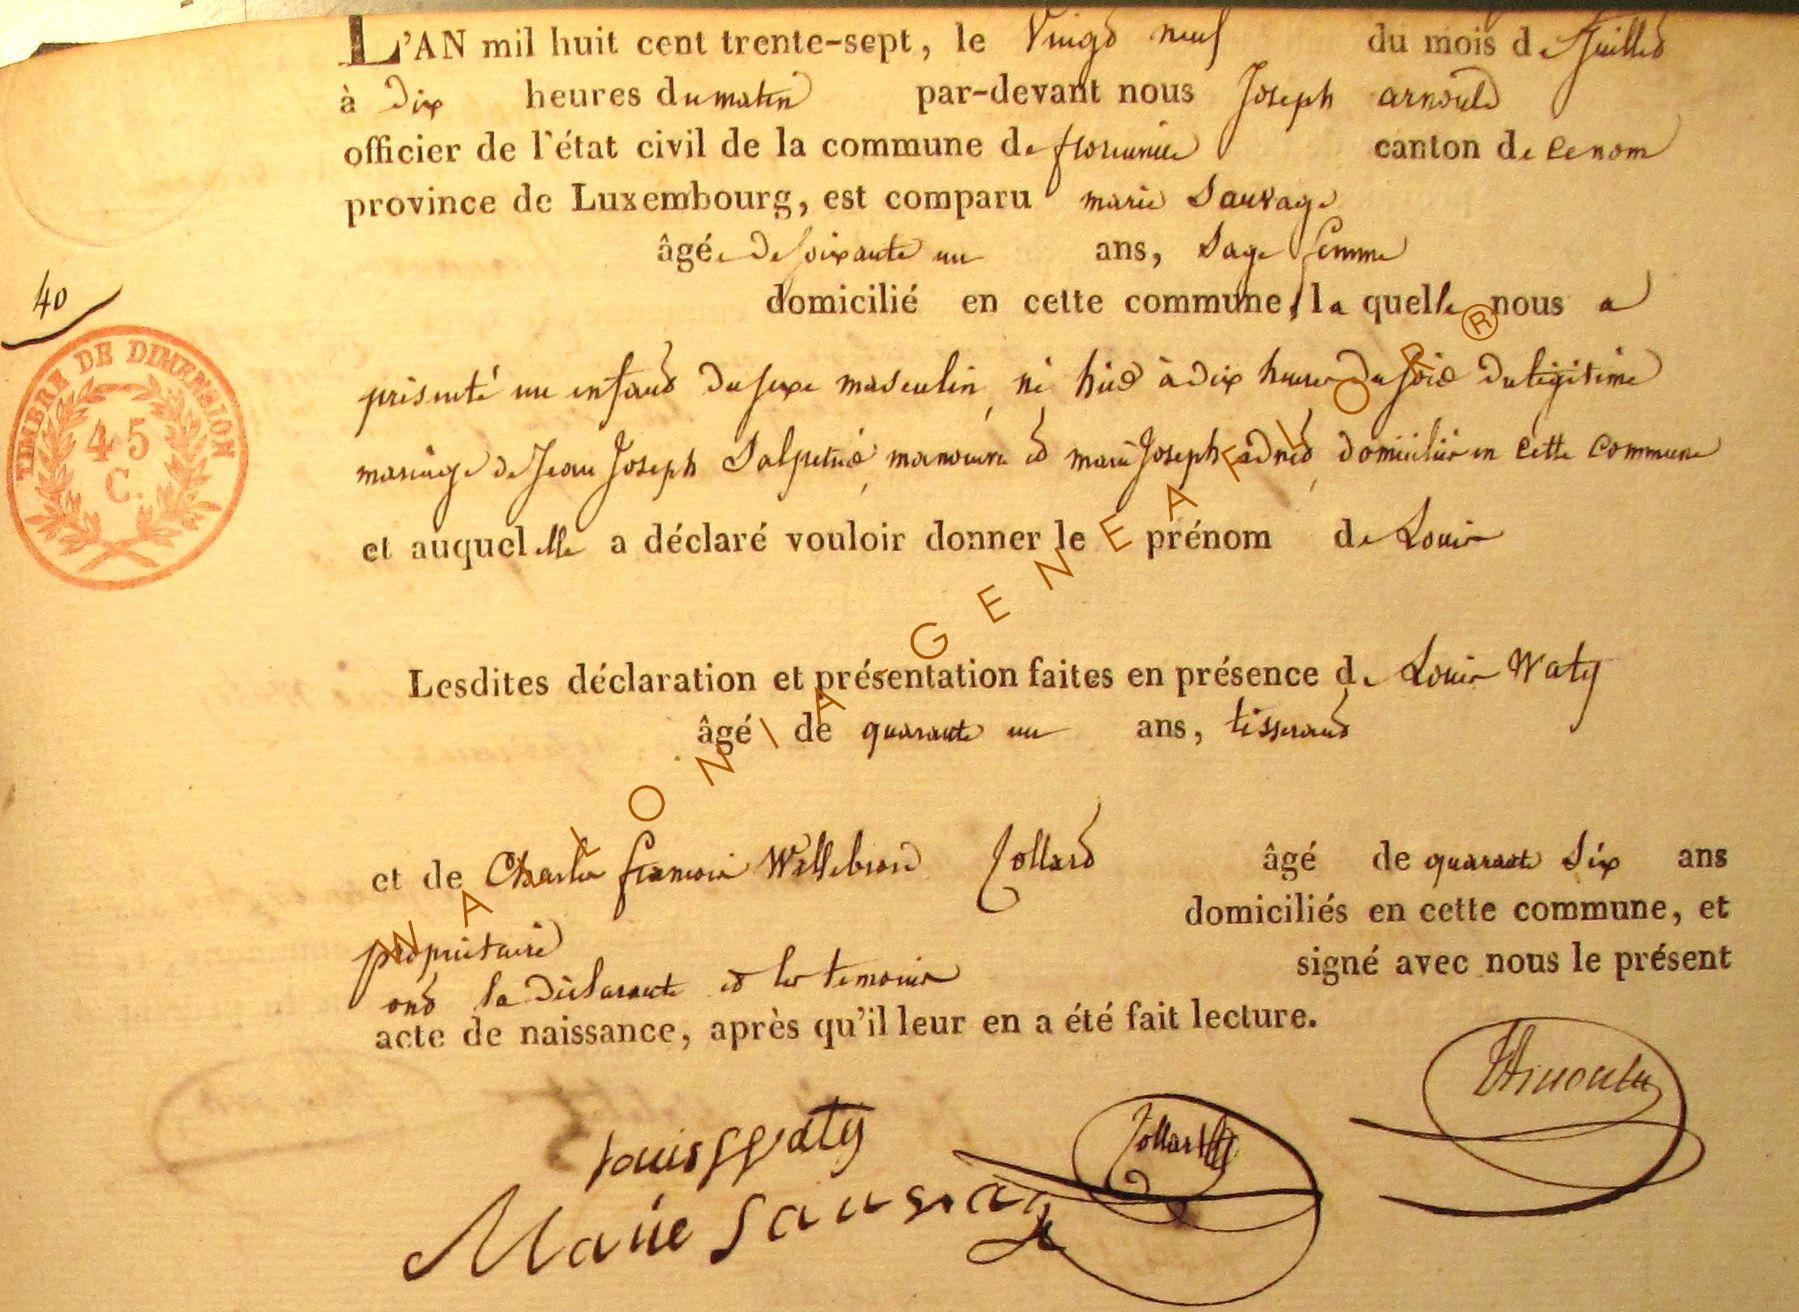 L'AN mil huit cent trente-sept, le Vingt neuf du mois de Juillet
à dix heures du matin par-devant nous Joseph arnould
officier de l'état civil de la commune de florenville canton de
province de Luxembourg, est comparu marie Sauvage
âgée de soixante un ans, Sage femme
domicilié en cette commune, la quelle nous a
40
présenté un enfant du sexe masculin, né hier à dix heures du soir du légitime
mariage de Jean Joseph manœuvre et marie Joseph domiciliés en cette commune
et auquel elle a déclaré vouloir donner le prénom de Louis
TIMBRE DE DIMENSION
45
C.
Lesdites déclaration et présentation faites en présence de Louis Waty
âgé de quarante un ans, tisserand
et de Charles françois Willebrord Collard âgé de quarante Six ans
domiciliés en cette commune, et
propriétaire
signé avec nous le présent
ont la déclarante et les temoins
acte de naissance, après qu'il leur en a été fait lecture.
Louis Waty
Collard
Marie Sauvage
WALLONIA GENEAFLOR ®